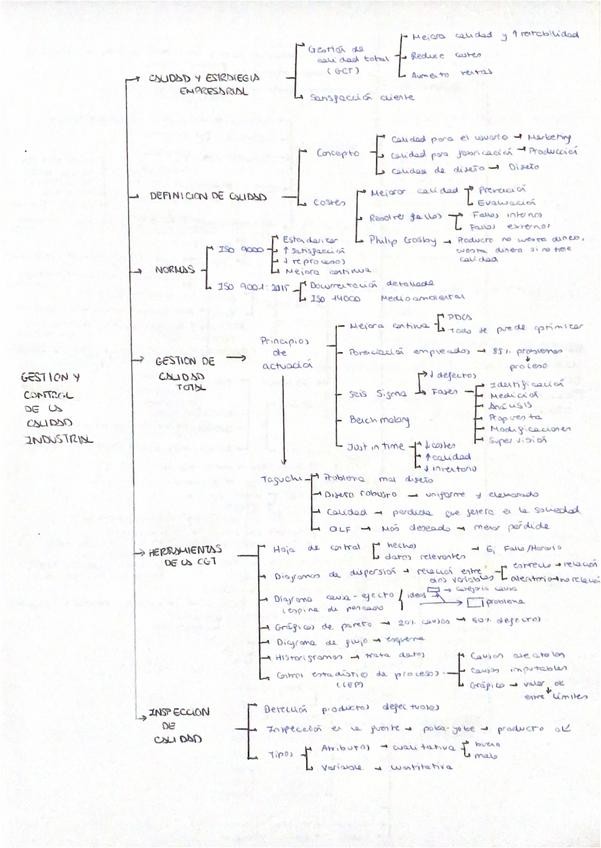 GESTION Y
CONTROL
DE LA
CALIDAD
INDUSTRIAL
CALIDAD Y ESTRATEGIA
EMPRESARIAL
Gestión de
calidad total
(GCT)
Mejora calidad y ↑ rentabilidad
Reduce costes
Aumento ventas
Satisfacción cliente
DEFINICION DE CALIDAD
Concepto
Calidad para el usuario → Marketing
Calidad para fabricación → Producción
Calidad de diseño → Diseño
Costes
Mejorar calidad → Prevención
Evaluación
Resolver fallos → Fallos internos
Fallos externos
Philip Crosby → Producto no
calidad
NORMAS
ISO 9000
Estandarizar
↑ Satisfacción
↓ reprocesos
Mejora continua
ISO 9001:2015
Documentación detallada
ISO 14000 Medioambiental
GESTION DE
CALIDAD
TOTAL
Principios
de
actuación
Mejora continua
PDCA
Todo se puede optimizar
Participación empleados → 85% problemas
↓
proceso
Seis Sigma
↓ defectos
Fases
Identificación
Medición
Análisis
Propuesta
Modificaciones
Supervisión
Benchmarking
Just in time
↓ costes
↑ calidad
↓ inventario
Taguchi
Problema mal diseño
Diseño robusto → uniforme y
Calidad → pérdida que genera en la sociedad
QLF → Más deseado → menor pérdida
HERRAMIENTAS
DE LA CGT
Hoja de control
hechos
datos relevantes → Ej, Fallo/Horario
Diagramas de dispersión → relación entre
dos variables
correcto → relación
aleatorio → no relación
Diagrama causa-efecto
(espina de pescado)
ideas
→ categoría causa
problema
Gráficos de pareto → 20% causas → 80% defectos
Diagrama de flujo → esquema
Historigramas → trata datos
Control estadístico de procesos
(CEP)
Causas aleatorias
Causas imputables
Gráfico → valor de
entre límites
INSPECCION
DE
CALIDAD
Detección productos defectuosos
Inspección en la fuente → poka-yoke → producto ok
Tipos
Atributos → cualitativa
bueno
malo
Variable → cuantitativa